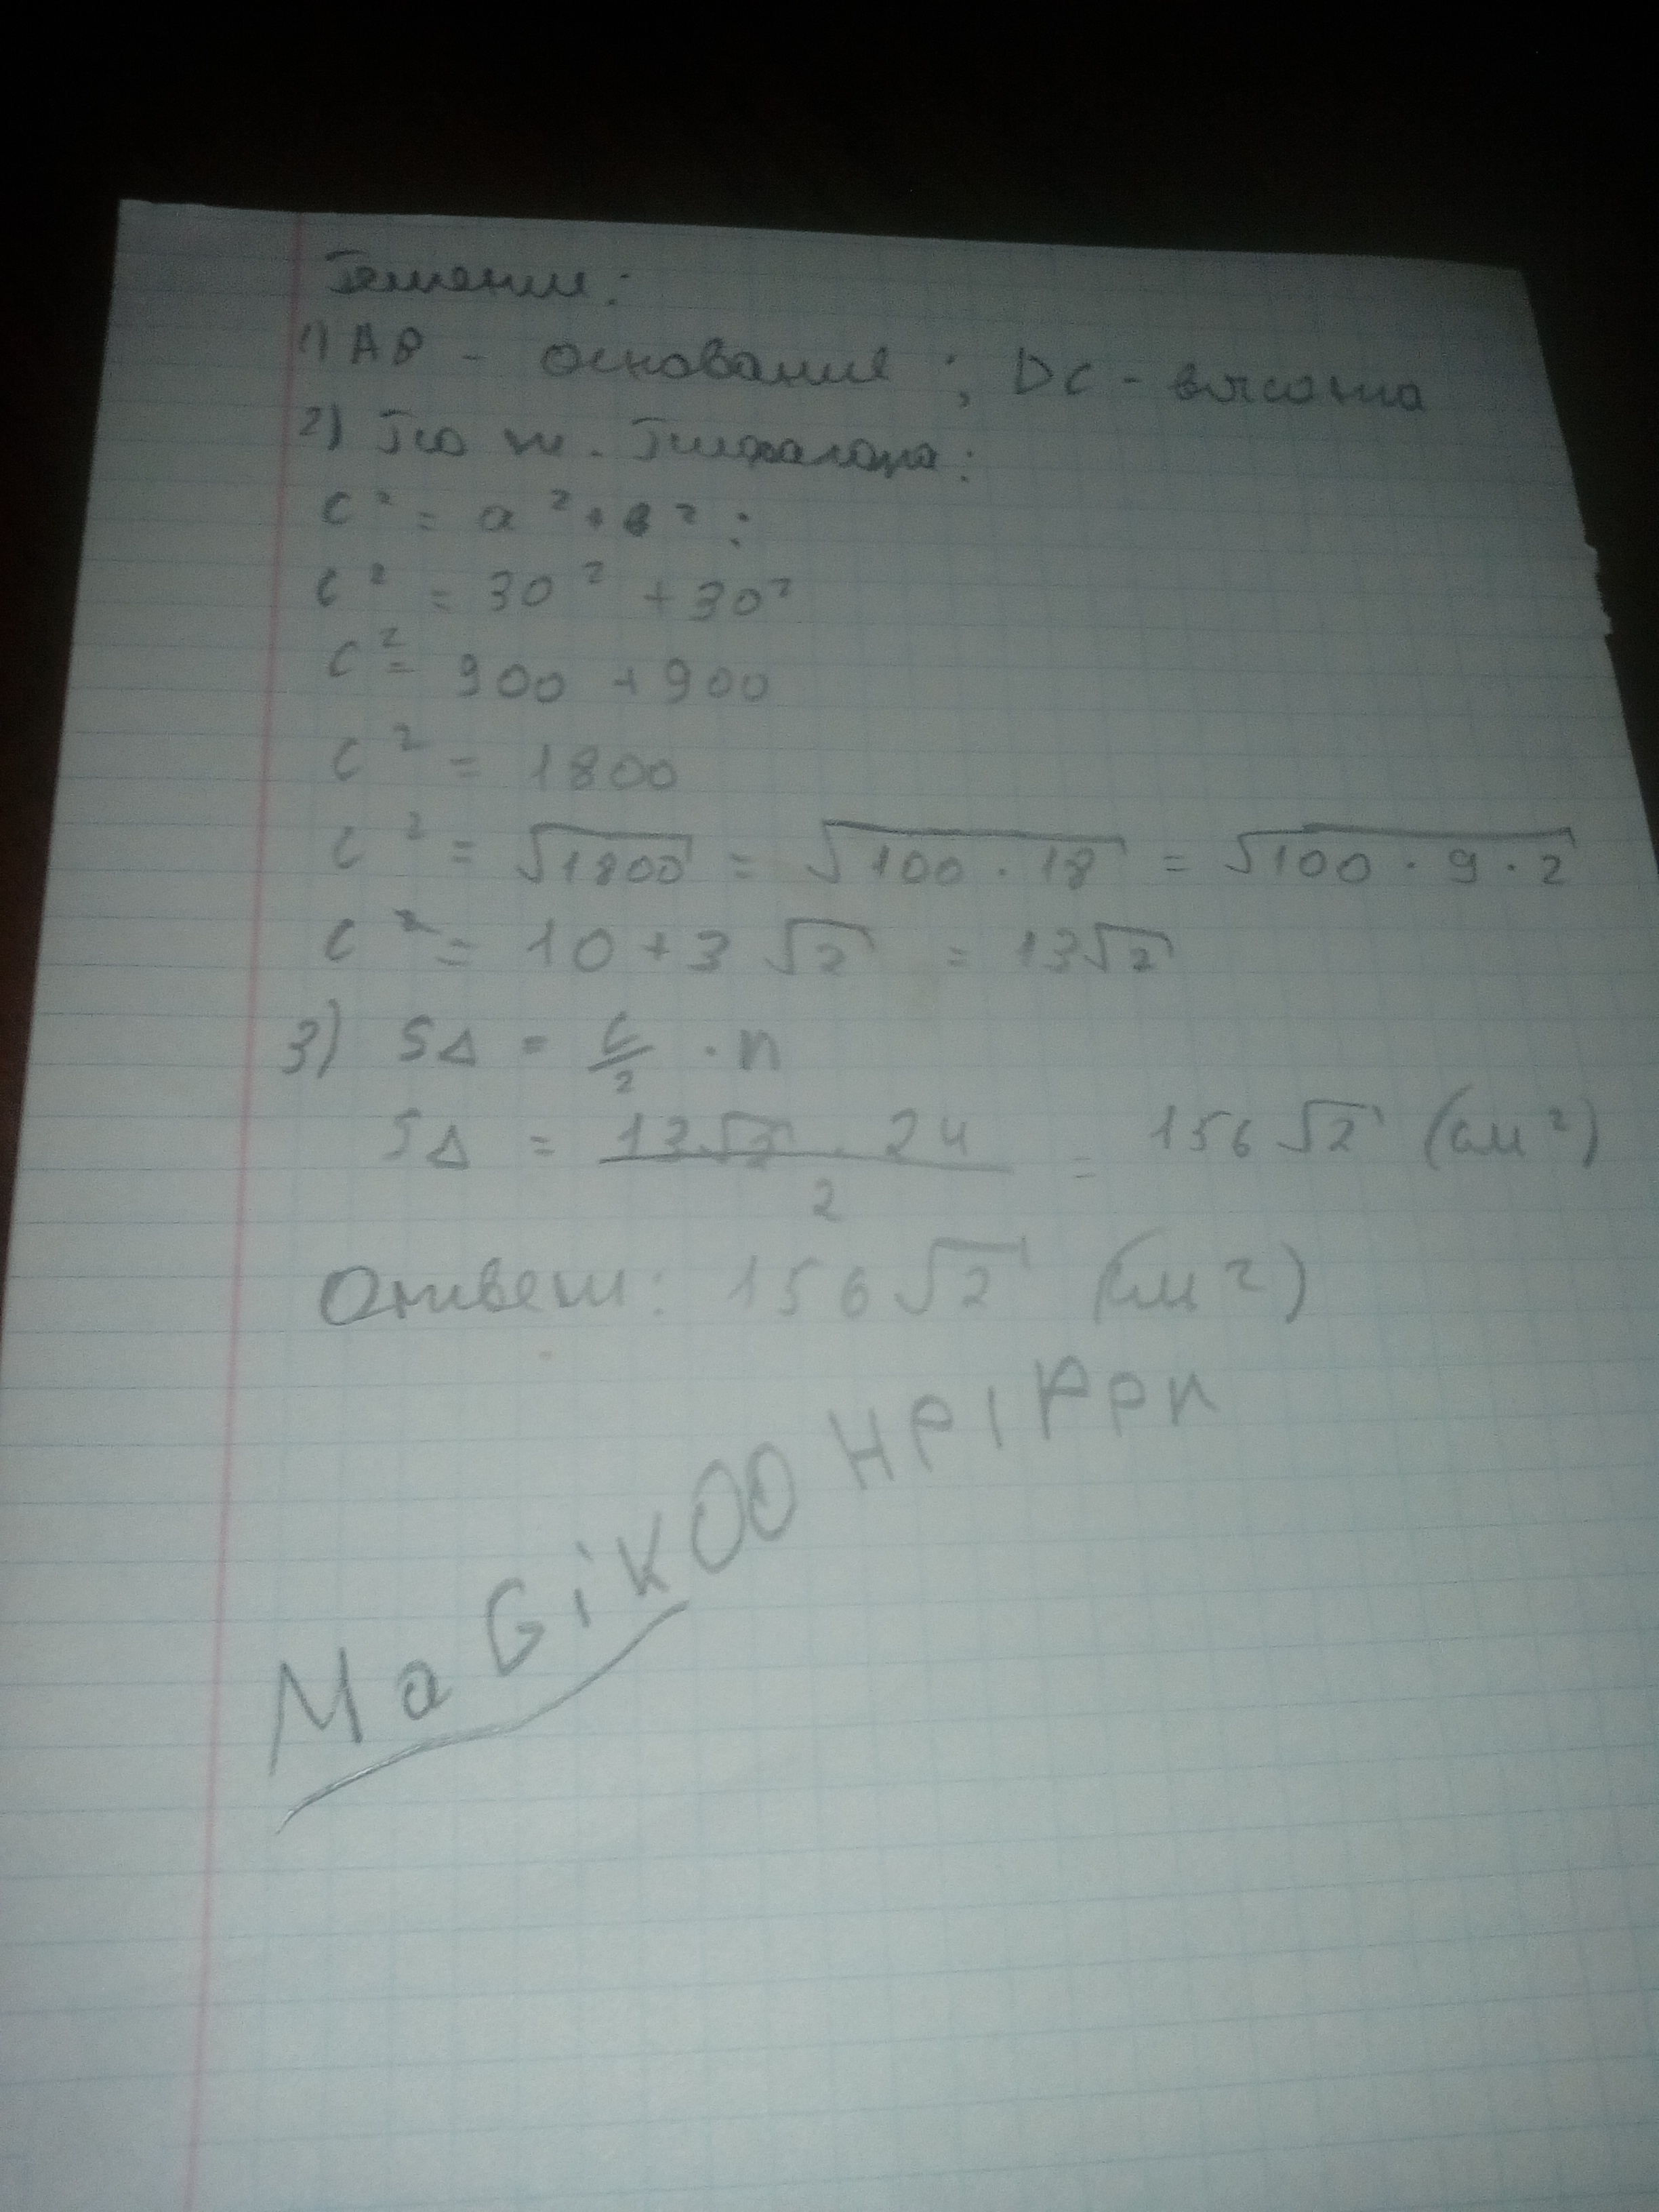 Решение:
1) AB - основание ; DC - высота
2) По т. Пифагора:
c² = a² + в² ;
c² = 30² + 30²
c² = 900 + 900
c² = 1800
c² = √1800 = √100 · 18 = √100 · 9 · 2
c² = 10 + 3 √2 = 13√2
3) S∆ = c/2 · h
S∆ = 13√2 · 24 / 2 = 156 √2 (см²)
Ответ: 156 √2 (см²)
MaGiKOO